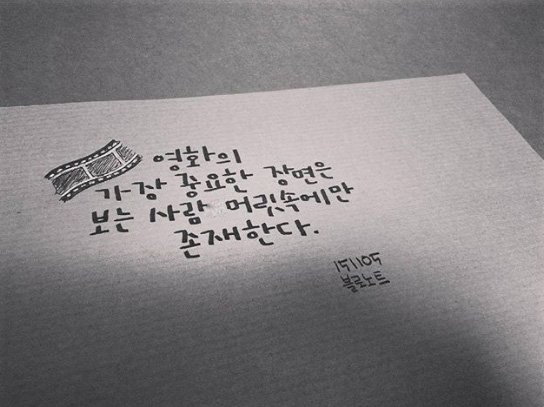 영화의
가장 중요한 장면은
보는 사람 머릿속에만
존재한다.
151105
블로노트